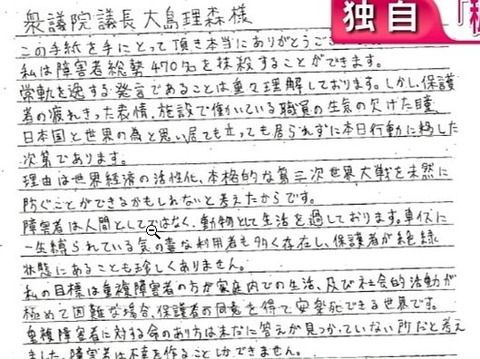 独自
衆議院議長大島理森様
この手紙を手にとって頂き本当にありがとうござ
私は障害者総勢470名を抹殺することができます。
常軌を逸する発言であることは重々理解しております。しかし、保護
者の疲れきった表情、施設で働いている職員の生気の欠けた瞳、
日本国と世界の為と思い居ても立っても居られずに本日行動に移した
次第であります。
理由は世界経済の活性化、本格的な第三次世界大戦を未然に
防ぐことができるかもしれないと考えたからです。
障害者は人間としてではなく、動物として生活を過しております。車イスに
一生縛られている気の毒な利用者も多く存在し、保護者が絶縁
状態にあることも珍しくありません。
私の目標は重複障害者の方が家庭内での生活、及び社会的活動が
極めて困難な場合、保護者の同意を得て安楽死できる世界です。
重複障害者に対する命のあり方は未だに答えが見つかっていない所だと考え
ました。障害者は不幸を作ることしかできません。